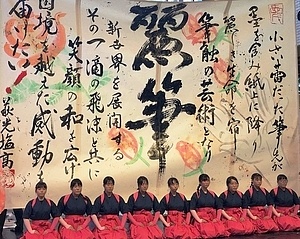 小さな雫だった筆先が
墨を含み紙に降り
麗しき生命を宿す
筆触の芸術となり
麗筆
新世界を展開する
その一滴の飛沫と共に
笑顔の和を広げ
国境を越えた感動を
届けたい!
萩光塩高